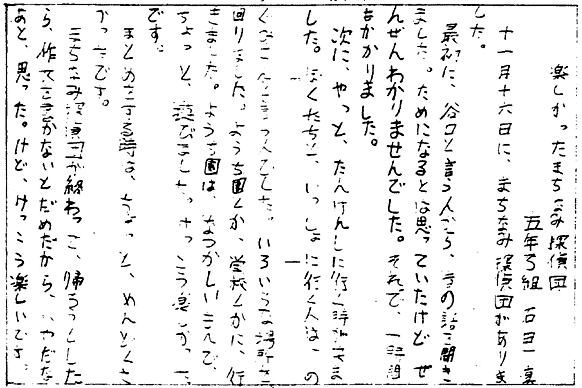 楽しかったまちなみ探偵団
五年3組 石田一真
十一月十六日に、まちなみ探偵団がありま
した。
最初に、谷口と言う人から、その話を聞き
ました。ためになるとは思っていたけどぜ
んぜんわかりませんでした。それで、一時間
もかかりました。
次に、やっと、たんけんしに行く時が来ま
した。ぼくたちと、いっしょに行く人は、の
さんと言う人でした。いろいろな場所を
回りました。ようち園とか、学校とかに、行
きました。ようち園は、なつかしいきもで、
ちょっと、遊びました。けっこう楽しかった
です。
まとめをする時は、ちょっと、めんどくさ
かったです。
まちなみ探偵団が終わって、帰ろうとした
ら、作文を書かないとだめだから、いやだな
あと、思った。けど、けっこう楽しいです。